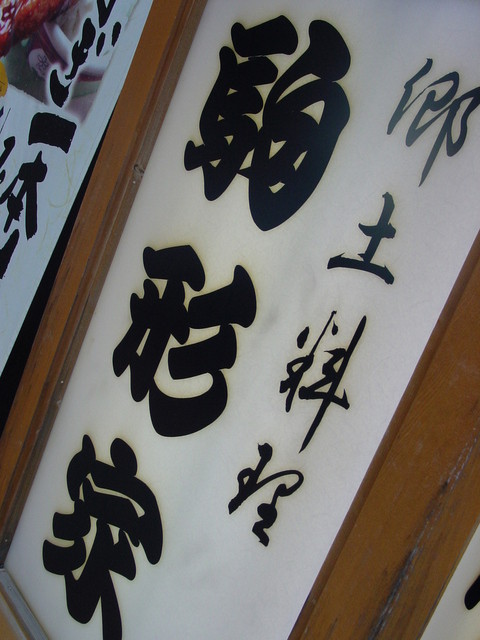 郷土料理
駒形家